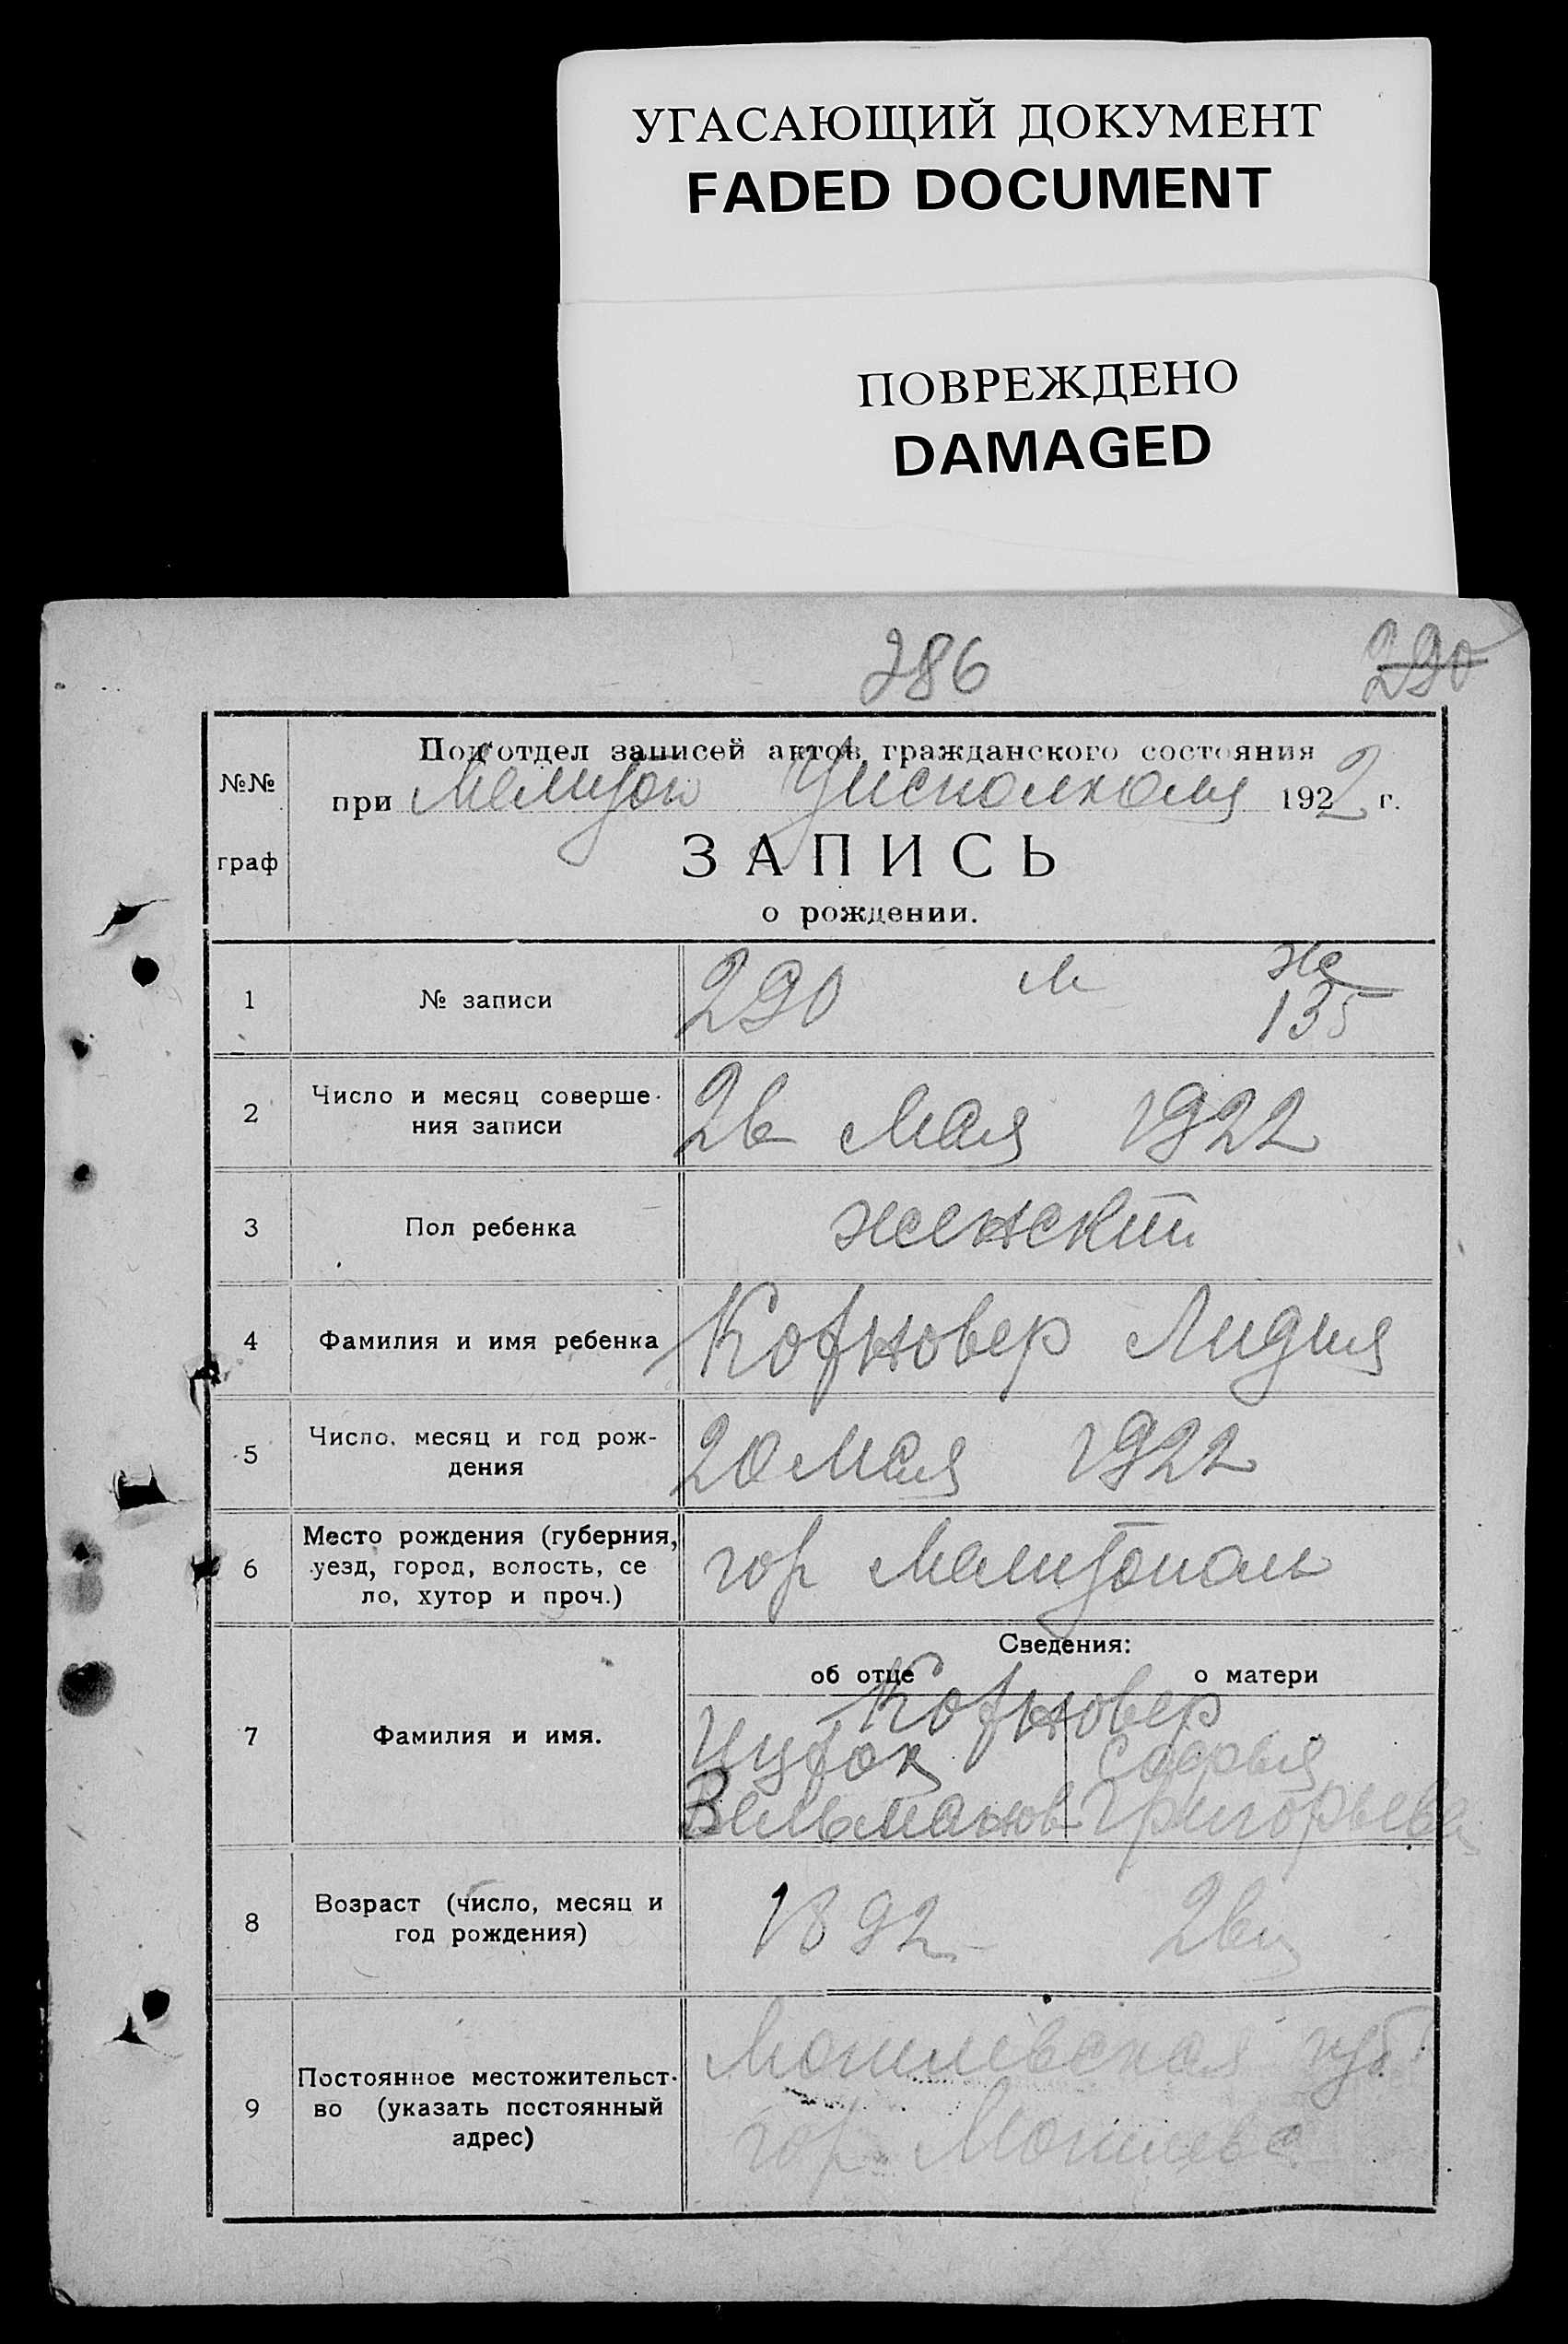 УГАСАЮЩИЙ ДОКУМЕНТ
FADED DOCUMENT
ПОВРЕЖДЕНО
DAMAGED
286 290
№№ граф
Подотдел записей актов гражданского состояния
при Мелитоп Уисполкома 1922 г.
ЗАПИСЬ
о рождении.
1 № записи 290 м же 135
2 Число и месяц соверше-
ния записи
26 Мая 1922
3 Пол ребенка женский
4 Фамилия и имя ребенка Кофновер Лидия
5 Число, месяц и год рож-
дения
20 Мая 1922
6 Место рождения (губерния,
уезд, город, волость, се
ло, хутор и проч.)
гор Мелитополь
Сведения:
об отце о матери
7 Фамилия и имя.
Кофновер
Ицхок Софья
Зельманов Григорьева
8 Возраст (число, месяц и
год рождения)
1892
9 Постоянное местожительст-
во (указать постоянный
адрес)
Могилевская губ
гор. Могилев